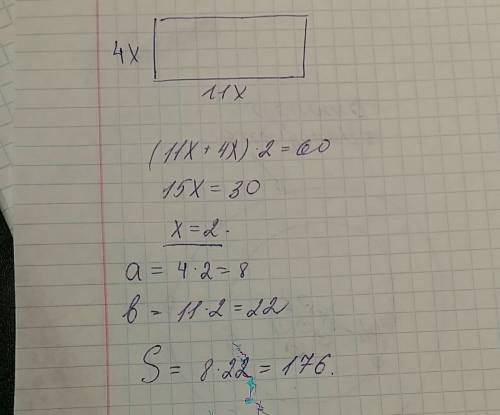 4x
11x
(11x + 4x) · 2 = 60
15x = 30
x = 2.
a = 4·2 = 8
b = 11·2 = 22
S = 8·22 = 176.